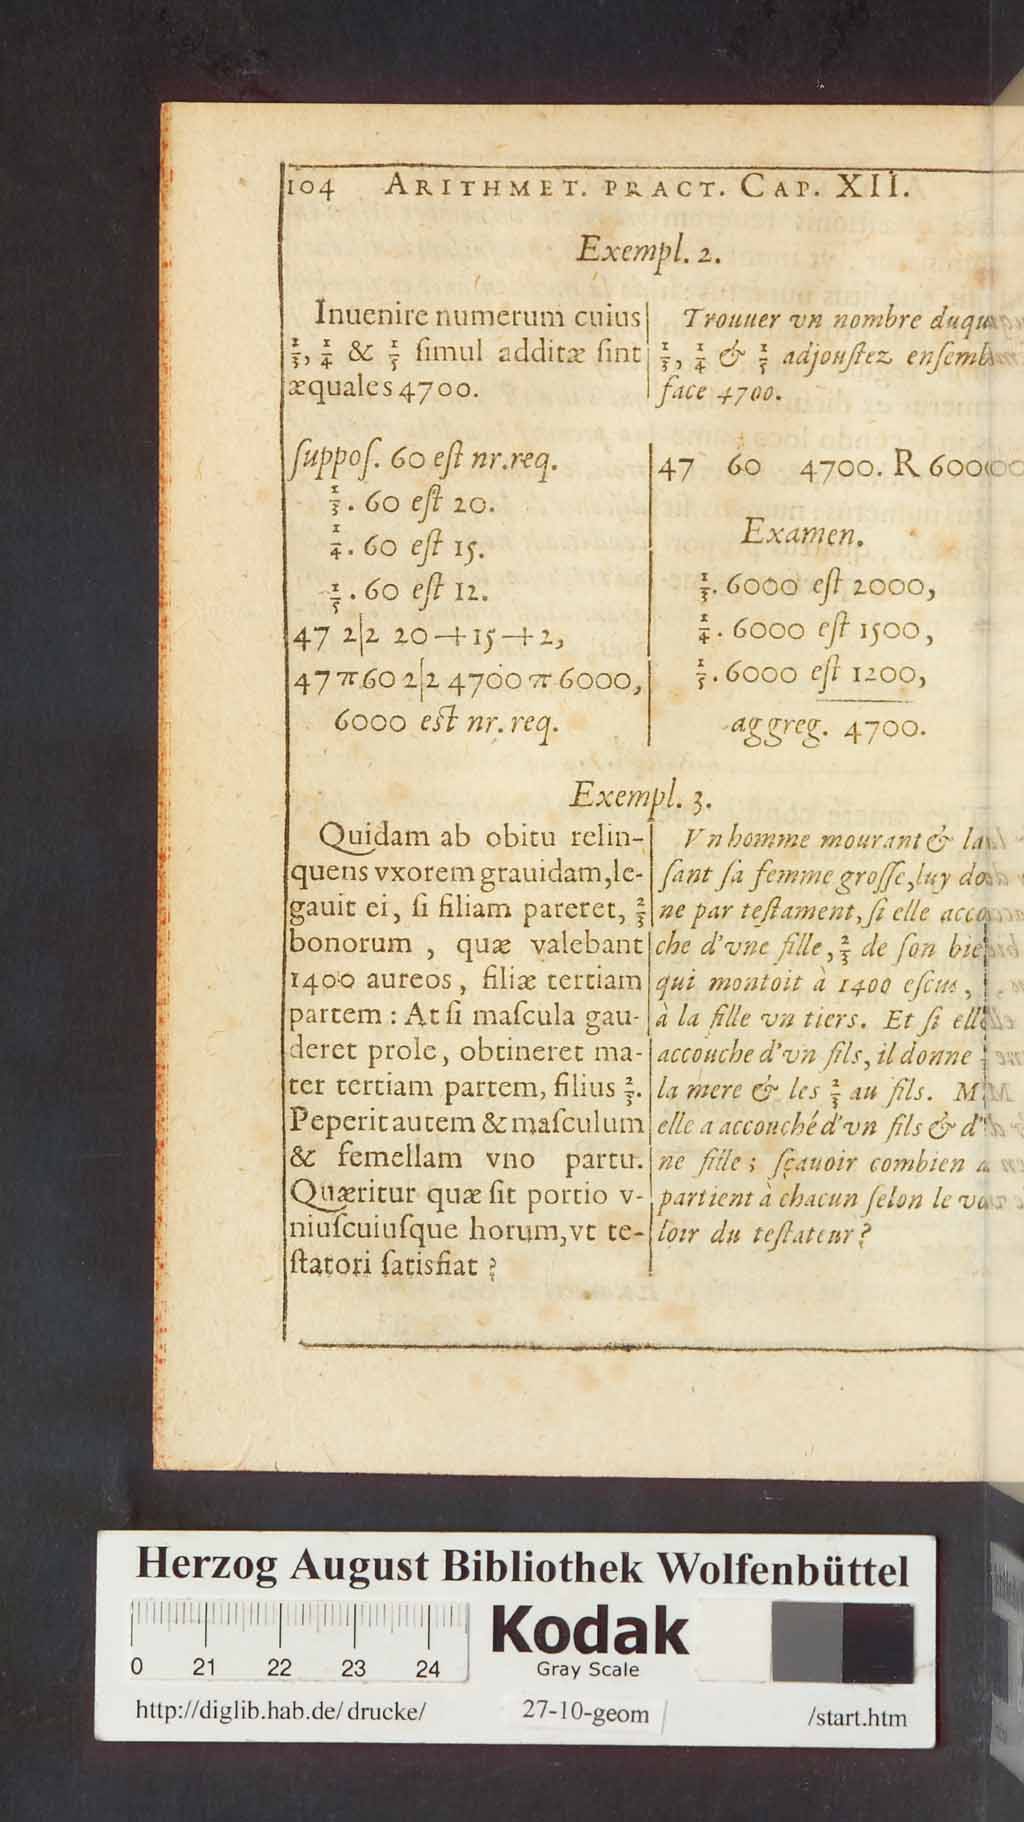 104 ARITHMET. PRACT. CAP. XII.
Exempl. 2.
Inuenire numerum cuius
⅓, ¼ & ⅕ ſimul additæ ſint
æquales 4700.
Trouuer vn nombre duqu
⅓, ¼ & ⅕ adjouſtez enſemb
face 4700.
ſuppoſ. 60 eſt nr. req.
⅓. 60 eſt 20.
¼. 60 eſt 15.
⅕. 60 eſt 12.
47 2|2 20+15+2,
47 π 60 2|2 4700 π 6000,
6000 eſt nr. req.
47 60 4700. R 6000
Examen.
⅓. 6000 eſt 2000,
¼. 6000 eſt 1500,
⅕. 6000 eſt 1200,
aggreg. 4700.
Exempl. 3.
Quidam ab obitu relin-
quens vxorem grauidam, le-
gauit ei, ſi filiam pareret, ⅔
bonorum , quæ valebant
1400 aureos , filiæ tertiam
partem : At ſi maſcula gau-
deret prole, obtineret ma-
ter tertiam partem, filius ⅔.
Peperit autem & maſculum
& femellam vno partu.
Quæritur quæ ſit portio v-
niuſcuiuſque horum, vt te-
ſtatori ſatisfiat ?
Vn homme mourant & la
ſant ſa femme groſſe, luy do
ne par teſtament, ſi elle acco
che d'vne fille, ⅔ de ſon bie
qui montoit à 1400 eſcus,
à la fille vn tiers. Et ſi elle
accouche d'vn fils, il donne
la mere & les ⅔ au fils. M
elle a accouché d'vn fils & d'
ne fille ; ſçauoir combien a
partient à chacun ſelon le vo
loir du teſtateur ?
Herzog August Bibliothek Wolfenbüttel
0 21 22 23 24
Kodak
Gray Scale
http://diglib.hab.de/drucke/ 27-10-geom /start.htm